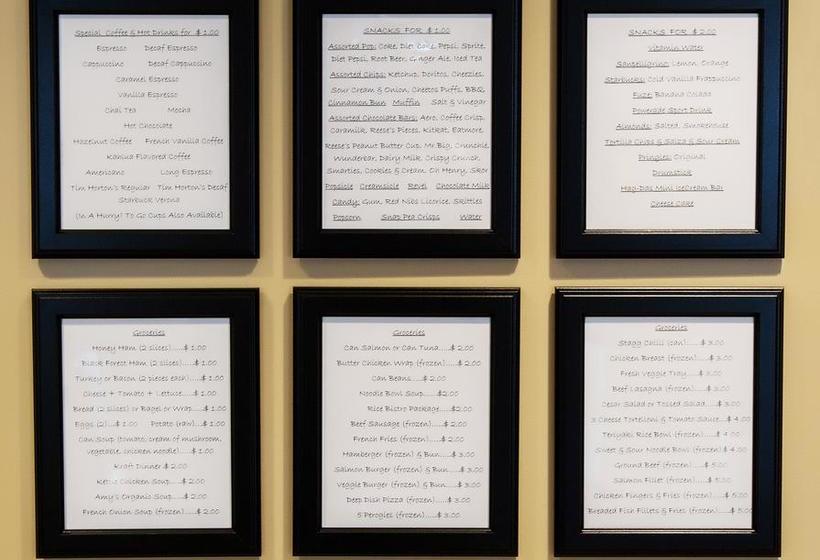 Special Coffee & Hot Drinks for $ 1.00
Espresso Decaf Espresso
Cappuccino Decaf Cappuccino
Caramel Espresso
Vanilla Espresso
Chai Tea Mocha
Hot Chocolate
Hazelnut Coffee French Vanilla Coffee
Kahlua Flavored Coffee
Americano Long Espresso
Tim Horton's Regular Tim Horton's Decaf
Starbuck Verona
(In A Hurry? To Go Cups Also Available)
SNACKS FOR $ 1.00
Assorted Pop: Coke, Diet Coke, Pepsi, Sprite,
Diet Pepsi, Root Beer, Ginger Ale, Iced Tea
Assorted Chips: Ketchup, Doritos, Cheezies,
Sour Cream & Onion, Cheetos Puffs, BBQ,
Cinnamon Bun Muffin Salt & Vinegar
Assorted Chocolate Bars: Aero, Coffee Crisp,
Caramilk, Reese's Pieces, Kitkat, Eatmore,
Reese's Peanut Butter Cup, Mr. Big, Crunchie,
Wunderbar, Dairy Milk, Crispy Crunch,
Smarties, Cookies & Cream, Oh Henry, Skor
Popsicle Creamsicle Revel Chocolate Milk
Candy: Gum, Red Nibs Licorice, Skittles
Popcorn Snap Pea Crisps Water
SNACKS FOR $ 2.00
Vitamin Water
Sanpelligrino: Lemon, Orange
Starbucks: Cold Vanilla Frappuccino
Fuze: Banana Colada
Powerade Sport Drink
Almonds: Salted, Smokehouse
Tortilla Chips & Salza & Sour Cream
Pringles: Original
Drumstick
Hag-Das Mini IceCream Bar
Cheese Cake
Groceries
Honey Ham (2 slices)....$ 1.00
Black Forest Ham (2 slices)....$ 1.00
Turkey or Bacon (2 pieces each)....$ 1.00
Cheese + Tomato + Lettuce....$ 1.00
Bread (2 slices) or Bagel or Wrap....$ 1.00
Eggs (2)....$ 1.00 Potato (raw)....$ 1.00
Can Soup (tomato, cream of mushroom,
vegetable, chicken noodle)....$ 1.00
Kraft Dinner $ 2.00
Chicken Soup....$ 2.00
Amy's Organic Soup....$ 2.00
French Onion Soup (frozen)....$ 2.00
Groceries
Can Salmon or Can Tuna....$ 2.00
Butter Chicken Wrap (frozen)....$ 2.00
Can Beans....$ 2.00
Noodle Bowl Soup....$2.00
Rice Bistro Package....$2.00
Beef Sausage (frozen)....$ 2.00
French Fries (frozen)....$ 2.00
Hamberger (frozen) & Bun....$ 3.00
Salmon Burger (frozen) & Bun....$ 3.00
Veggie Burger (frozen) & Bun....$ 3.00
Deep Dish Pizza (frozen)....$ 3.00
5 Perogies (frozen)....$ 3.00
Groceries
Stagg Chilli (can)....$ 3.00
Chicken Breast (frozen)....$ 3.00
Fresh Veggie Tray....$ 3.00
Beef Lasagna (frozen)....$ 3.00
Cesar Salad or Tossed Salad....$ 3.00
3 Cheese Tortelloni & Tomato Sauce....$ 4.00
Teriyaki Rice Bowl (frozen)....$ 4.00
Sweet & Sour Noodle Bowl (frozen)....$ 4.00
Ground Beef (frozen)....$ 5.00
Salmon Fillet (frozen)....$ 5.00
Chicken Fingers & Fries (frozen)....$ 5.00
Breaded Fish Fillets & Fries (frozen)....$ 5.00